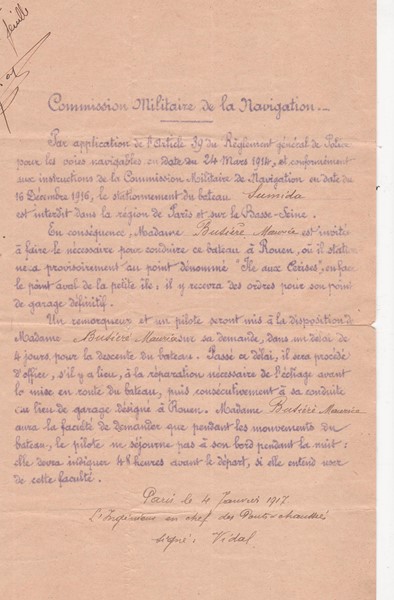 Commission Militaire de la Navigation.
Par application de l'Article 39 du Règlement général de Police
pour les voies navigables en date du 24 Mars 1914, et conformément
aux instructions de la Commission Militaire de Navigation en date du
16 Décembre 1916, le stationnement du bateau Sumida
est interdit dans la région de Paris et sur la Basse-Seine.
En conséquence, Madame Busière Maurice est invitée
à faire le nécessaire pour conduire ce bateau à Rouen, où il station
nera provisoirement au point dénommé "Ile aux Cerises", en face
le point aval de la petite île ; il y recevra des ordres pour son point
de garage définitif.
Un remorqueur et un pilote seront mis à la disposition de
Madame Busière Maurice sur sa demande, dans un délai de
4 jours, pour la descente du bateau. Passé ce délai, il sera procédé
d'office, s'il y a lieu, à la réparation nécessaire de l'échiage avant
la mise en route du bateau, puis consécutivement à sa conduite
au lieu de garage désigné à Rouen. Madame Busière Maurice
aura la faculté de demander que pendant les mouvements du
bateau, le pilote ne séjourne pas à son bord pendant la nuit :
elle devra indiquer 48 heures avant le départ, si elle entend user
de cette faculté.
Paris le 4 Janvier 1917
L'Ingénieur en chef des Ponts & chaussées
signé : Vidal